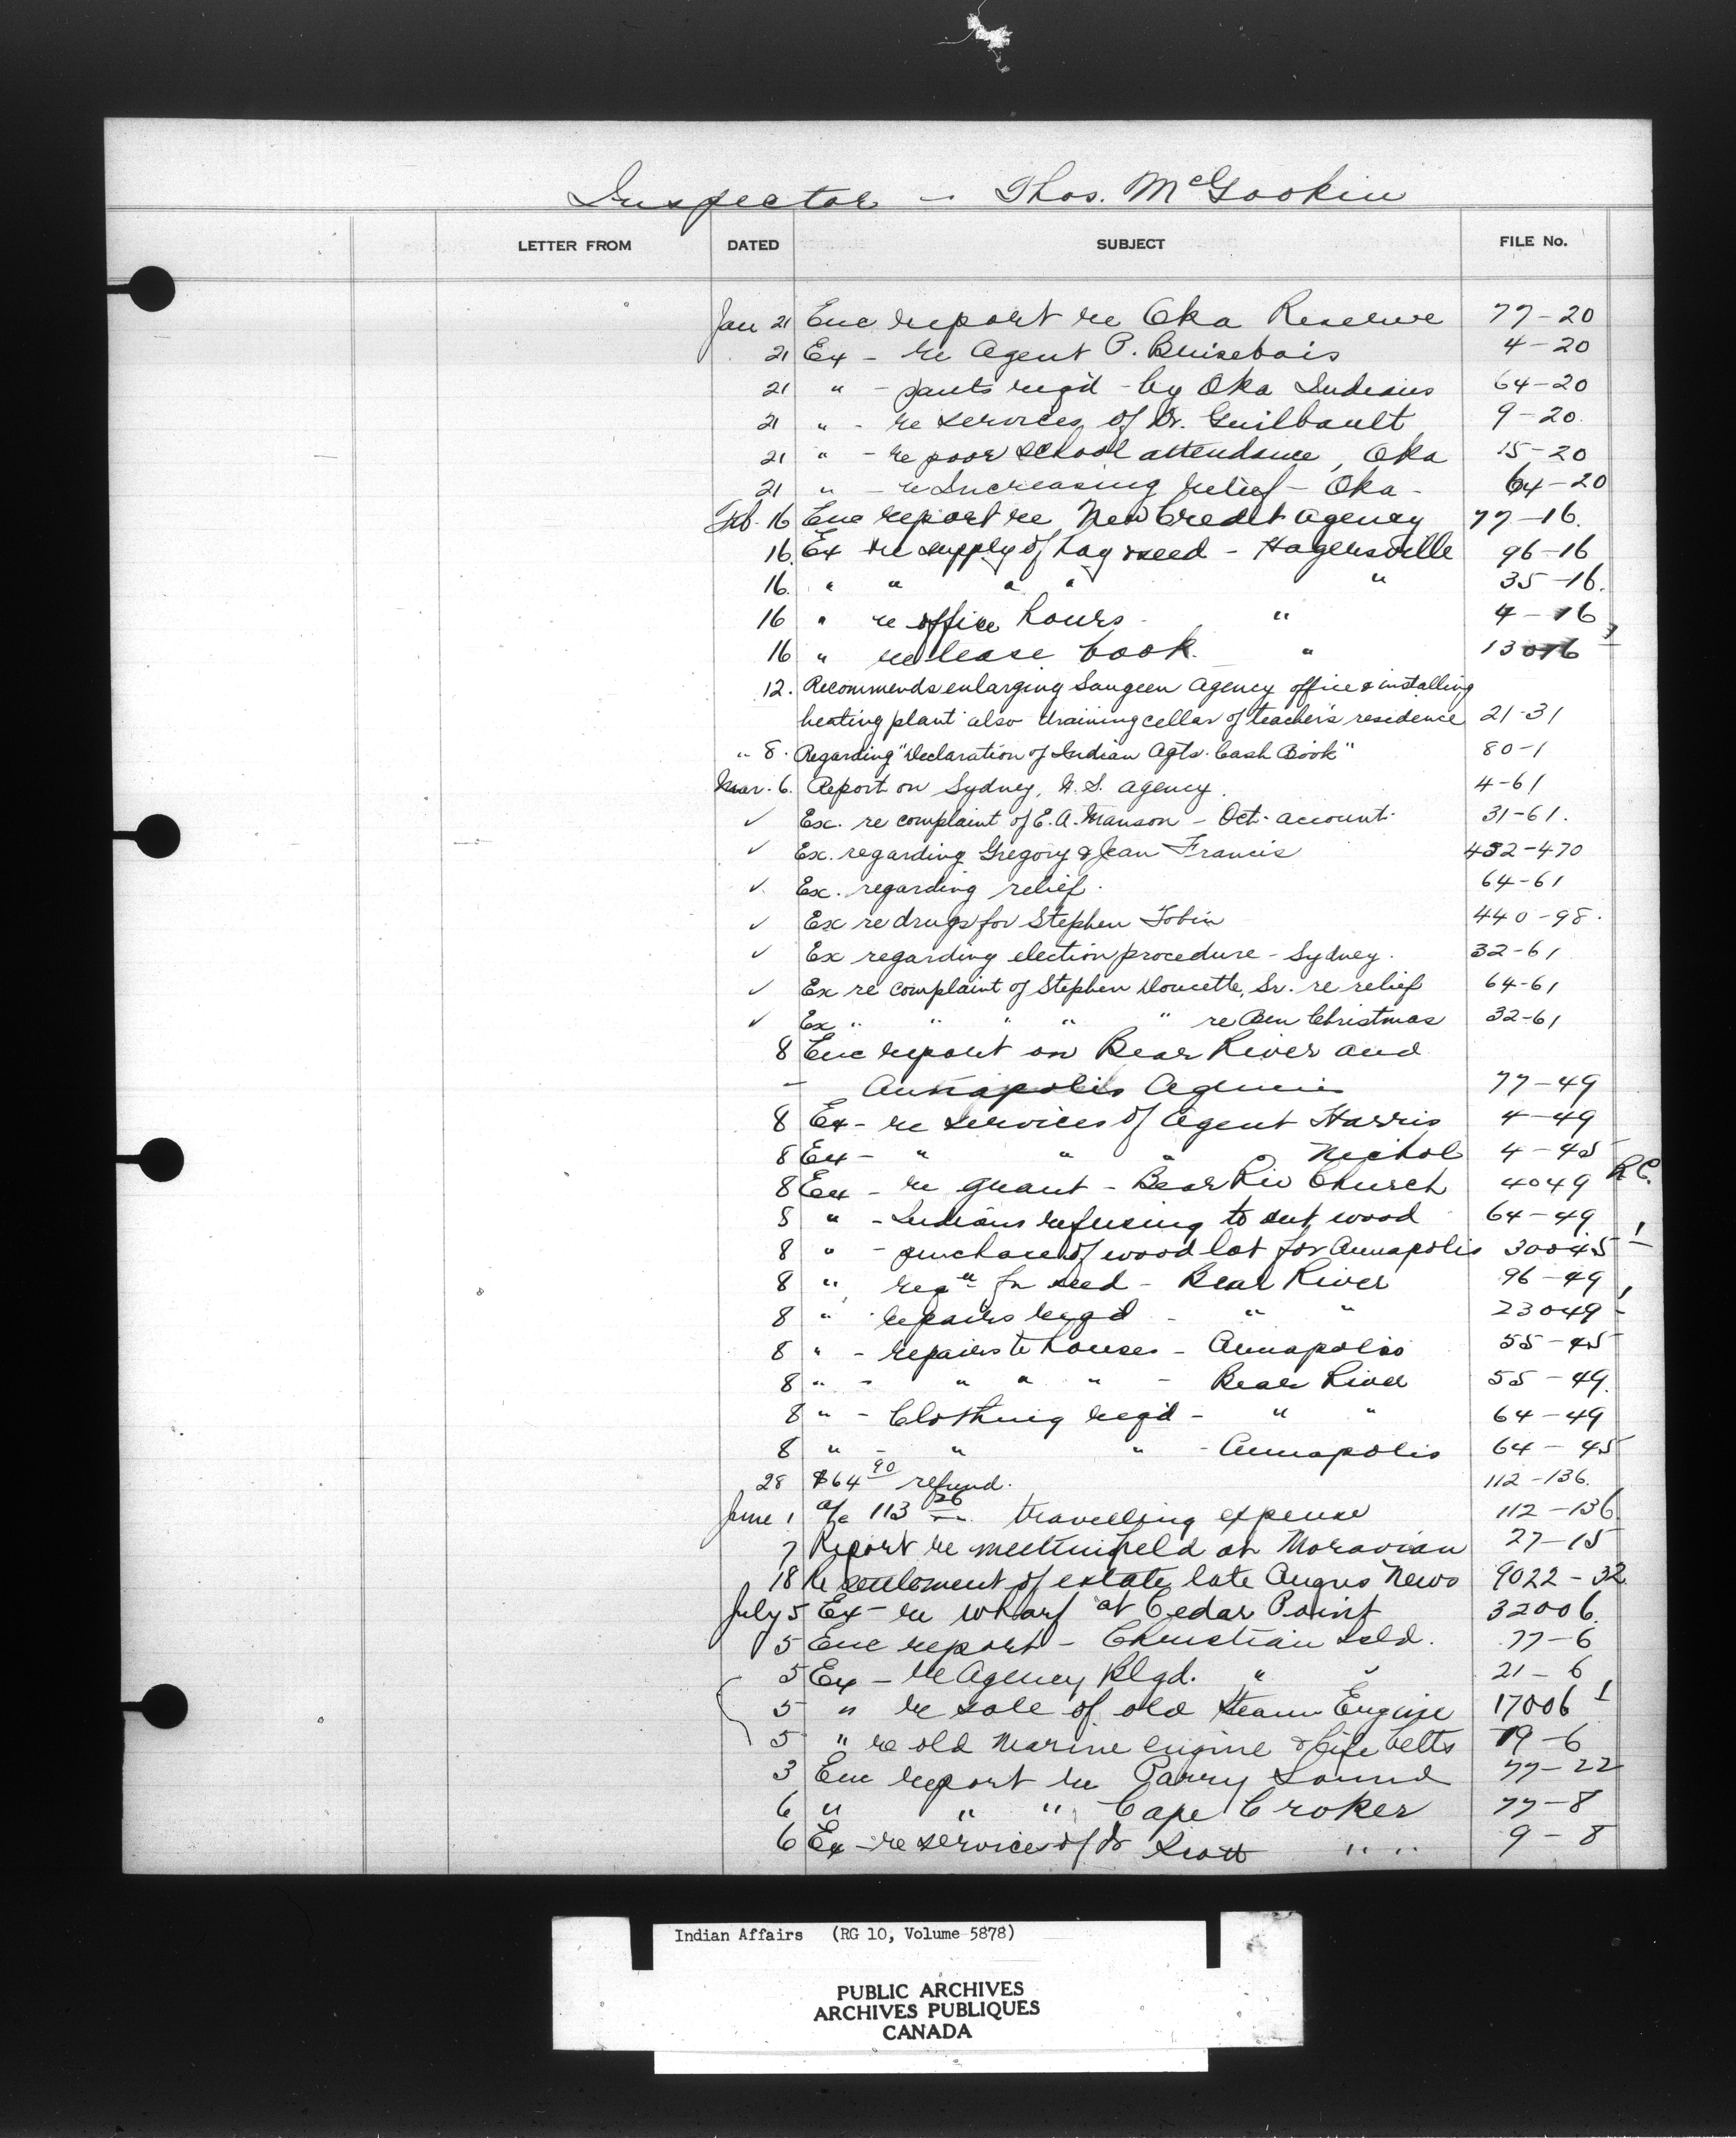 Inspector - Thos. McGookin
LETTER FROM DATED SUBJECT FILE No.
Jan 21 Enc report re Oka Reserve 77-20
21 Ex - re Agent P. Brisebois 4-20
21 " - pants reqd - by Oka Indians 64-20
21 " - re services of Dr. Guilbault 9-20
21 " - re poor school attendance, Oka 15-20
21 " - re Increasing relief - Oka - 64-20
Feb. 16 Enc report re New Credit Agency 77-16.
16. Ex re supply of hay & seed - Hagersville 96-16
16. " " " " " 35-16.
16 " re office hours - " 4-16
16 " re lease book. " 13016
12. Recommends enlarging Saugeen Agency office & installing
heating plant also draining cellar of teacher's residence 21-31
" 8. Regarding "Declaration of Indian Agts. Cash Book" 80-1
Mar. 6. Report on Sydney, N.S. Agency. 4-61
✓ Ex. re complaint of E.A. Manson - Oct. account. 31-61.
✓ Ex. regarding Gregory & Jean Francis 432-470
✓ Ex. regarding relief. 64-61
✓ Ex re drugs for Stephen Tobin 440-98.
✓ Ex regarding election procedure - Sydney. 32-61
✓ Ex re complaint of Stephen Doucette, Sr. re relief 64-61
✓ Ex " " " " " re Ben Christmas 32-61
8 Enc report on Bear River and
- Annapolis Agencies 77-49
8 Ex - re services of Agent Harris 4-49
8 Ex - " " " Nichol 4-45
8 Ex - re grant - Bear Riv Church 4049 R.C.
8 " - Indians refusing to cut wood 64-49
8 " - purchase of wood lot for Annapolis 30045 1
8 " reqn for seed - Bear River 96-49
8 " repairs reqd - " " 23049 1
8 " - repairs to houses - Annapolis 55-45
8 " - " " " - Bear River 55-49.
8 " - Clothing reqd - " " 64-49
8 " - " " - Annapolis 64-45
28 $64 90 refund. 112-136.
June 1 a/c 113 26 travelling expense 112-136
7 Report re meeting held at Moravian 27-15
18 Re settlement of estate late Angus News 9022-32
July 5 Ex - re wharf at Cedar Point 32006.
5 Enc report - Christian Isld. 77-6
5 Ex - re Agency Blgd. " " 21-6
5 " re sale of old Steam Engine 17006 1
5 " re old Marine engine & life belts 19-6
3 Enc report re Parry Sound 77-22
6 " " " Cape Croker 77-8
6 Ex - re services of Dr " " 9-8
Indian Affairs (RG 10, Volume 5878)
PUBLIC ARCHIVES
ARCHIVES PUBLIQUES
CANADA